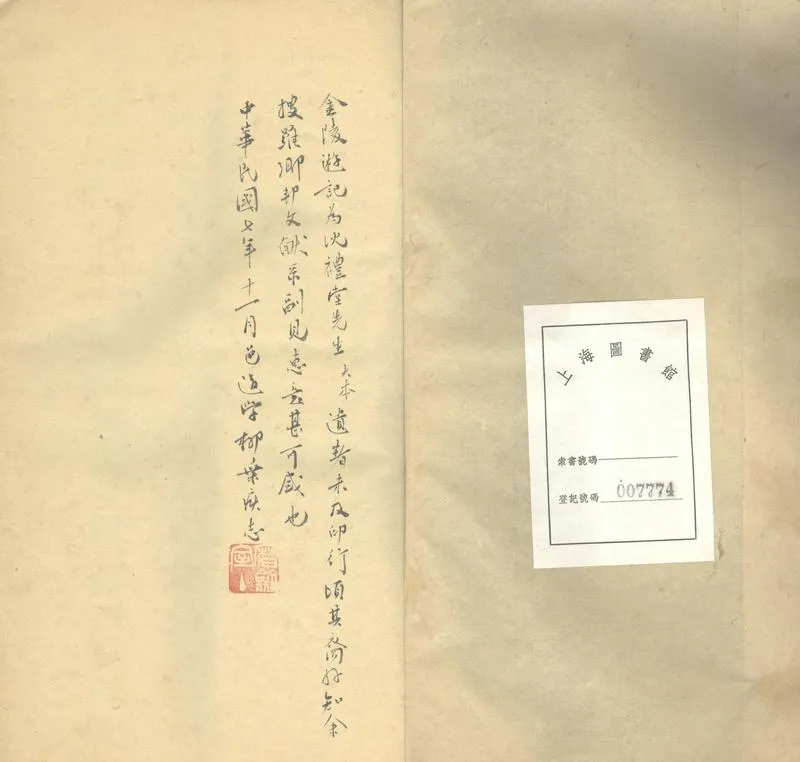 上海圖書館
索書號碼
登記號碼 007774
金陵遊記為沈禮堂先生大本遺著未及印行頃其裔孫知余
搜羅鄉邦文獻录副見惠意甚可感也
中華民國七年十一月邑後学柳棄疾志